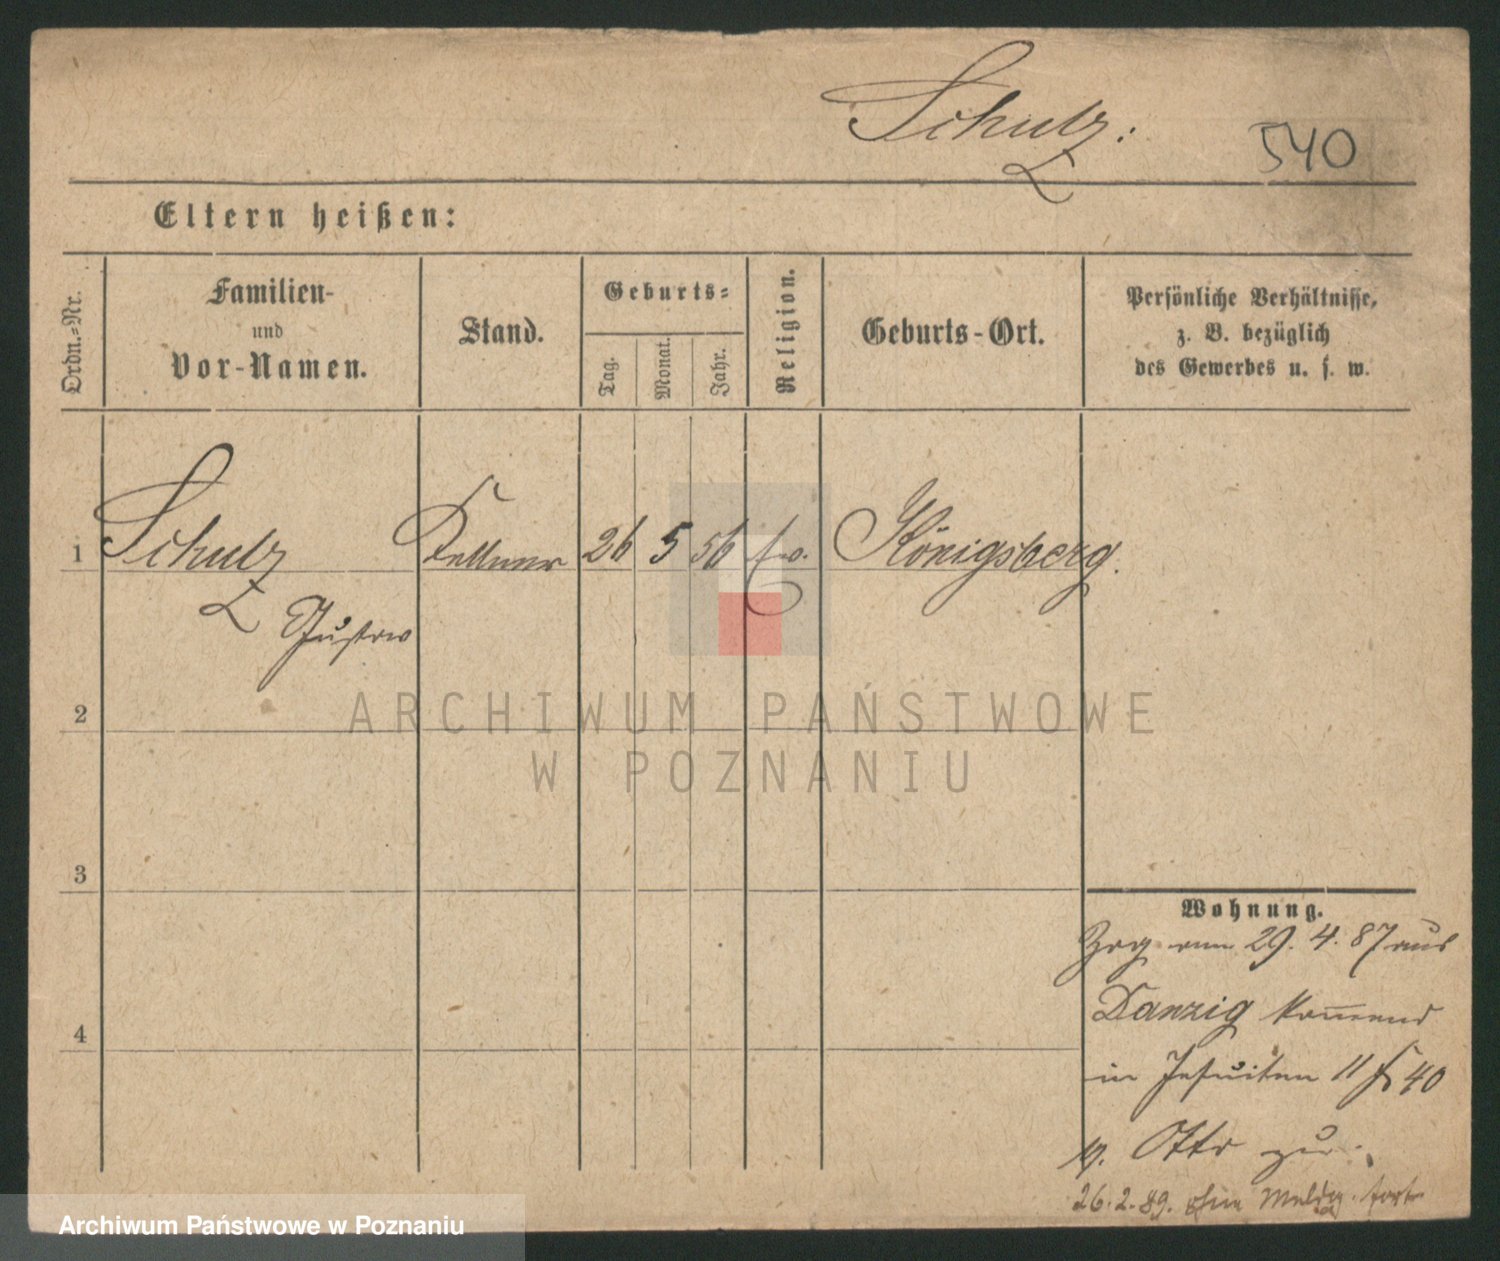 Schulz:
540
Eltern heißen:
Ordn.-Nr.
Familien-
und
Vor-Namen.
Stand.
Geburts-
Tag.
Monat.
Jahr.
Religion.
Geburts-Ort.
Persönliche Verhältnisse,
z. B. bezüglich
des Gewerbes u. s. w.
1 Schulz Kellner 26 5 56 ev. Königsberg.
Gustav
2
ARCHIWUM PAŃSTWOWE
W POZNANIU
3
4
Wohnung.
Zog am 29. 4. 87 aus
Danzig kommend
in Jesuiten 11 40
Otto zu
26.2.89. ohne Meldg. fort
Archiwum Państwowe w Poznaniu